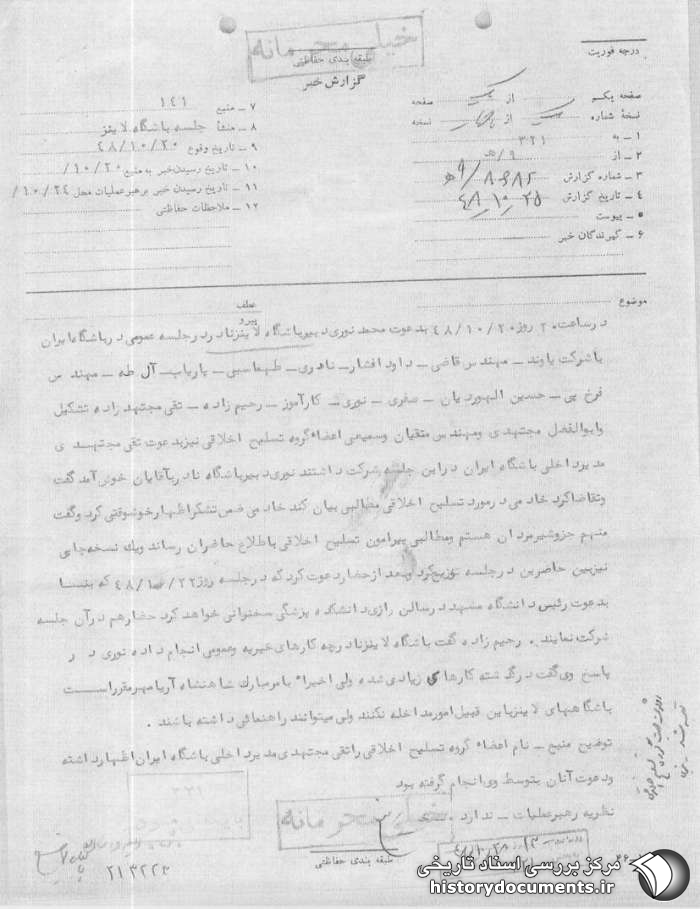 خیلی محرمانه
طبقه بندی حفاظتی
گزارش خبر
درجه فوریت
صفحه یکم از صفحه
نسخهٔ شماره از نسخه
۱ ـ به ۳۲۱
۲ ـ از ۹/ه‍
۳ ـ شماره گزارش
۴ ـ تاریخ گزارش
۵ ـ پیوست
۶ ـ گیرندگان خبر
۷ ـ منبع ۱۴۱
۸ ـ منشأ جلسه باشگاه لاینز
۹ ـ تاریخ وقوع ۴۸/۱۰/۲۰
۱۰ ـ تاریخ رسیدن خبر به منبع ۱۰/۲۰/
۱۱ ـ تاریخ رسیدن خبر برهبر عملیات محل ۱۰/۲۴/
۱۲ ـ ملاحظات حفاظتی
موضوع
عطف
پیرو
در ساعت ۲۰ روز ۴۸/۱۰/۲۰ بدعوت محمد نوری دبیر باشگاه لاینز نادر در جلسه عمومی در باشگاه ایران
با شرکت یاوند ـ مهندس قاضی ـ داود افشار ـ نادری ـ طهماسبی ـ یاریاب ـ آل طه ـ مهندس
فرخ پی ـ حسین الهوردیان ـ صفری ـ نوری ـ کارآموز ـ رحیم زاده ـ تقی مجتهد زاده تشکیل
و ابوالفضل مجتهدی و مهندس متقیان وسمیعی اعضاء گروه تسلیح اخلاقی نیز بدعوت تقی مجتهدی
مدیر داخلی باشگاه ایران در این جلسه شرکت داشتند نوری دبیر باشگاه نادر بآقایان خوش آمد گفت
و تقاضا کرد خادمی در مورد تسلیح اخلاقی مطالبی بیان کند خادمی ضمن تشکر اظهار خوشوقتی کرد و گفت
منهم جزو شیر مردان هستم و مطالبی پیرامون تسلیح اخلاقی باطلاع حاضران رساند و یک نسخه چاپی
نیز بین حاضرین در جلسه توزیع کرد و بعد از حضار دعوت کرد که در جلسه روز ۴۸/۱۰/۲۲ که بنا
بدعوت رئیس دانشگاه مشهد در سالن رازی دانشکده پزشکی سخنرانی خواهد کرد حضار هم در آن جلسه
شرکت نمایند . رحیم زاده گفت باشگاه لاینز نادر چه کارهای خیریه وعمومی انجام داده نوری در
پاسخ وی گفت در گذشته کارهای زیادی شده ولی اخیراً بامر مبارک شاهنشاه آریامهر مقرر است
باشگاههای لاینز باین قبیل امور مداخله نکنند ولی میتوانند راهنمائی داشته باشند .
توضیح منبع ـ نام اعضاء گروه تسلیح اخلاقی را تقی مجتهدی مدیر داخلی باشگاه ایران اظهار داشته
و دعوت آنان بتوسط وی انجام گرفته بود
نظریه رهبر عملیات ـ ندارد .
خیلی محرمانه
طبقه بندی حفاظتی
۲۱۳۲۲۳
مرکز بررسی اسناد تاریخی
historydocuments.ir